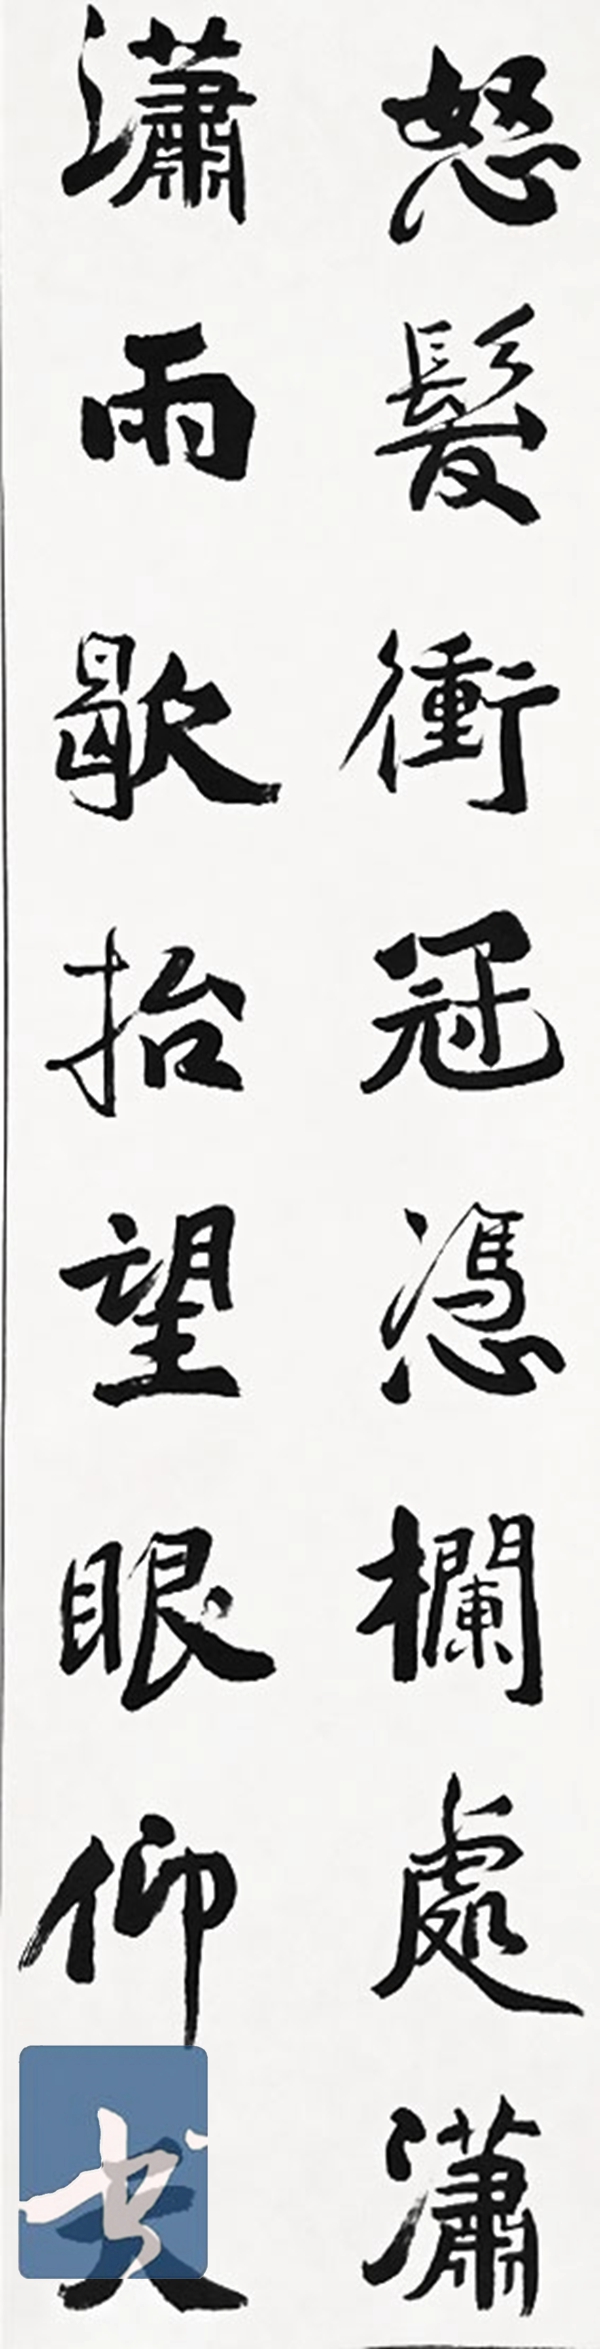 怒髮衝冠憑欄處瀟
瀟雨歇抬望眼仰